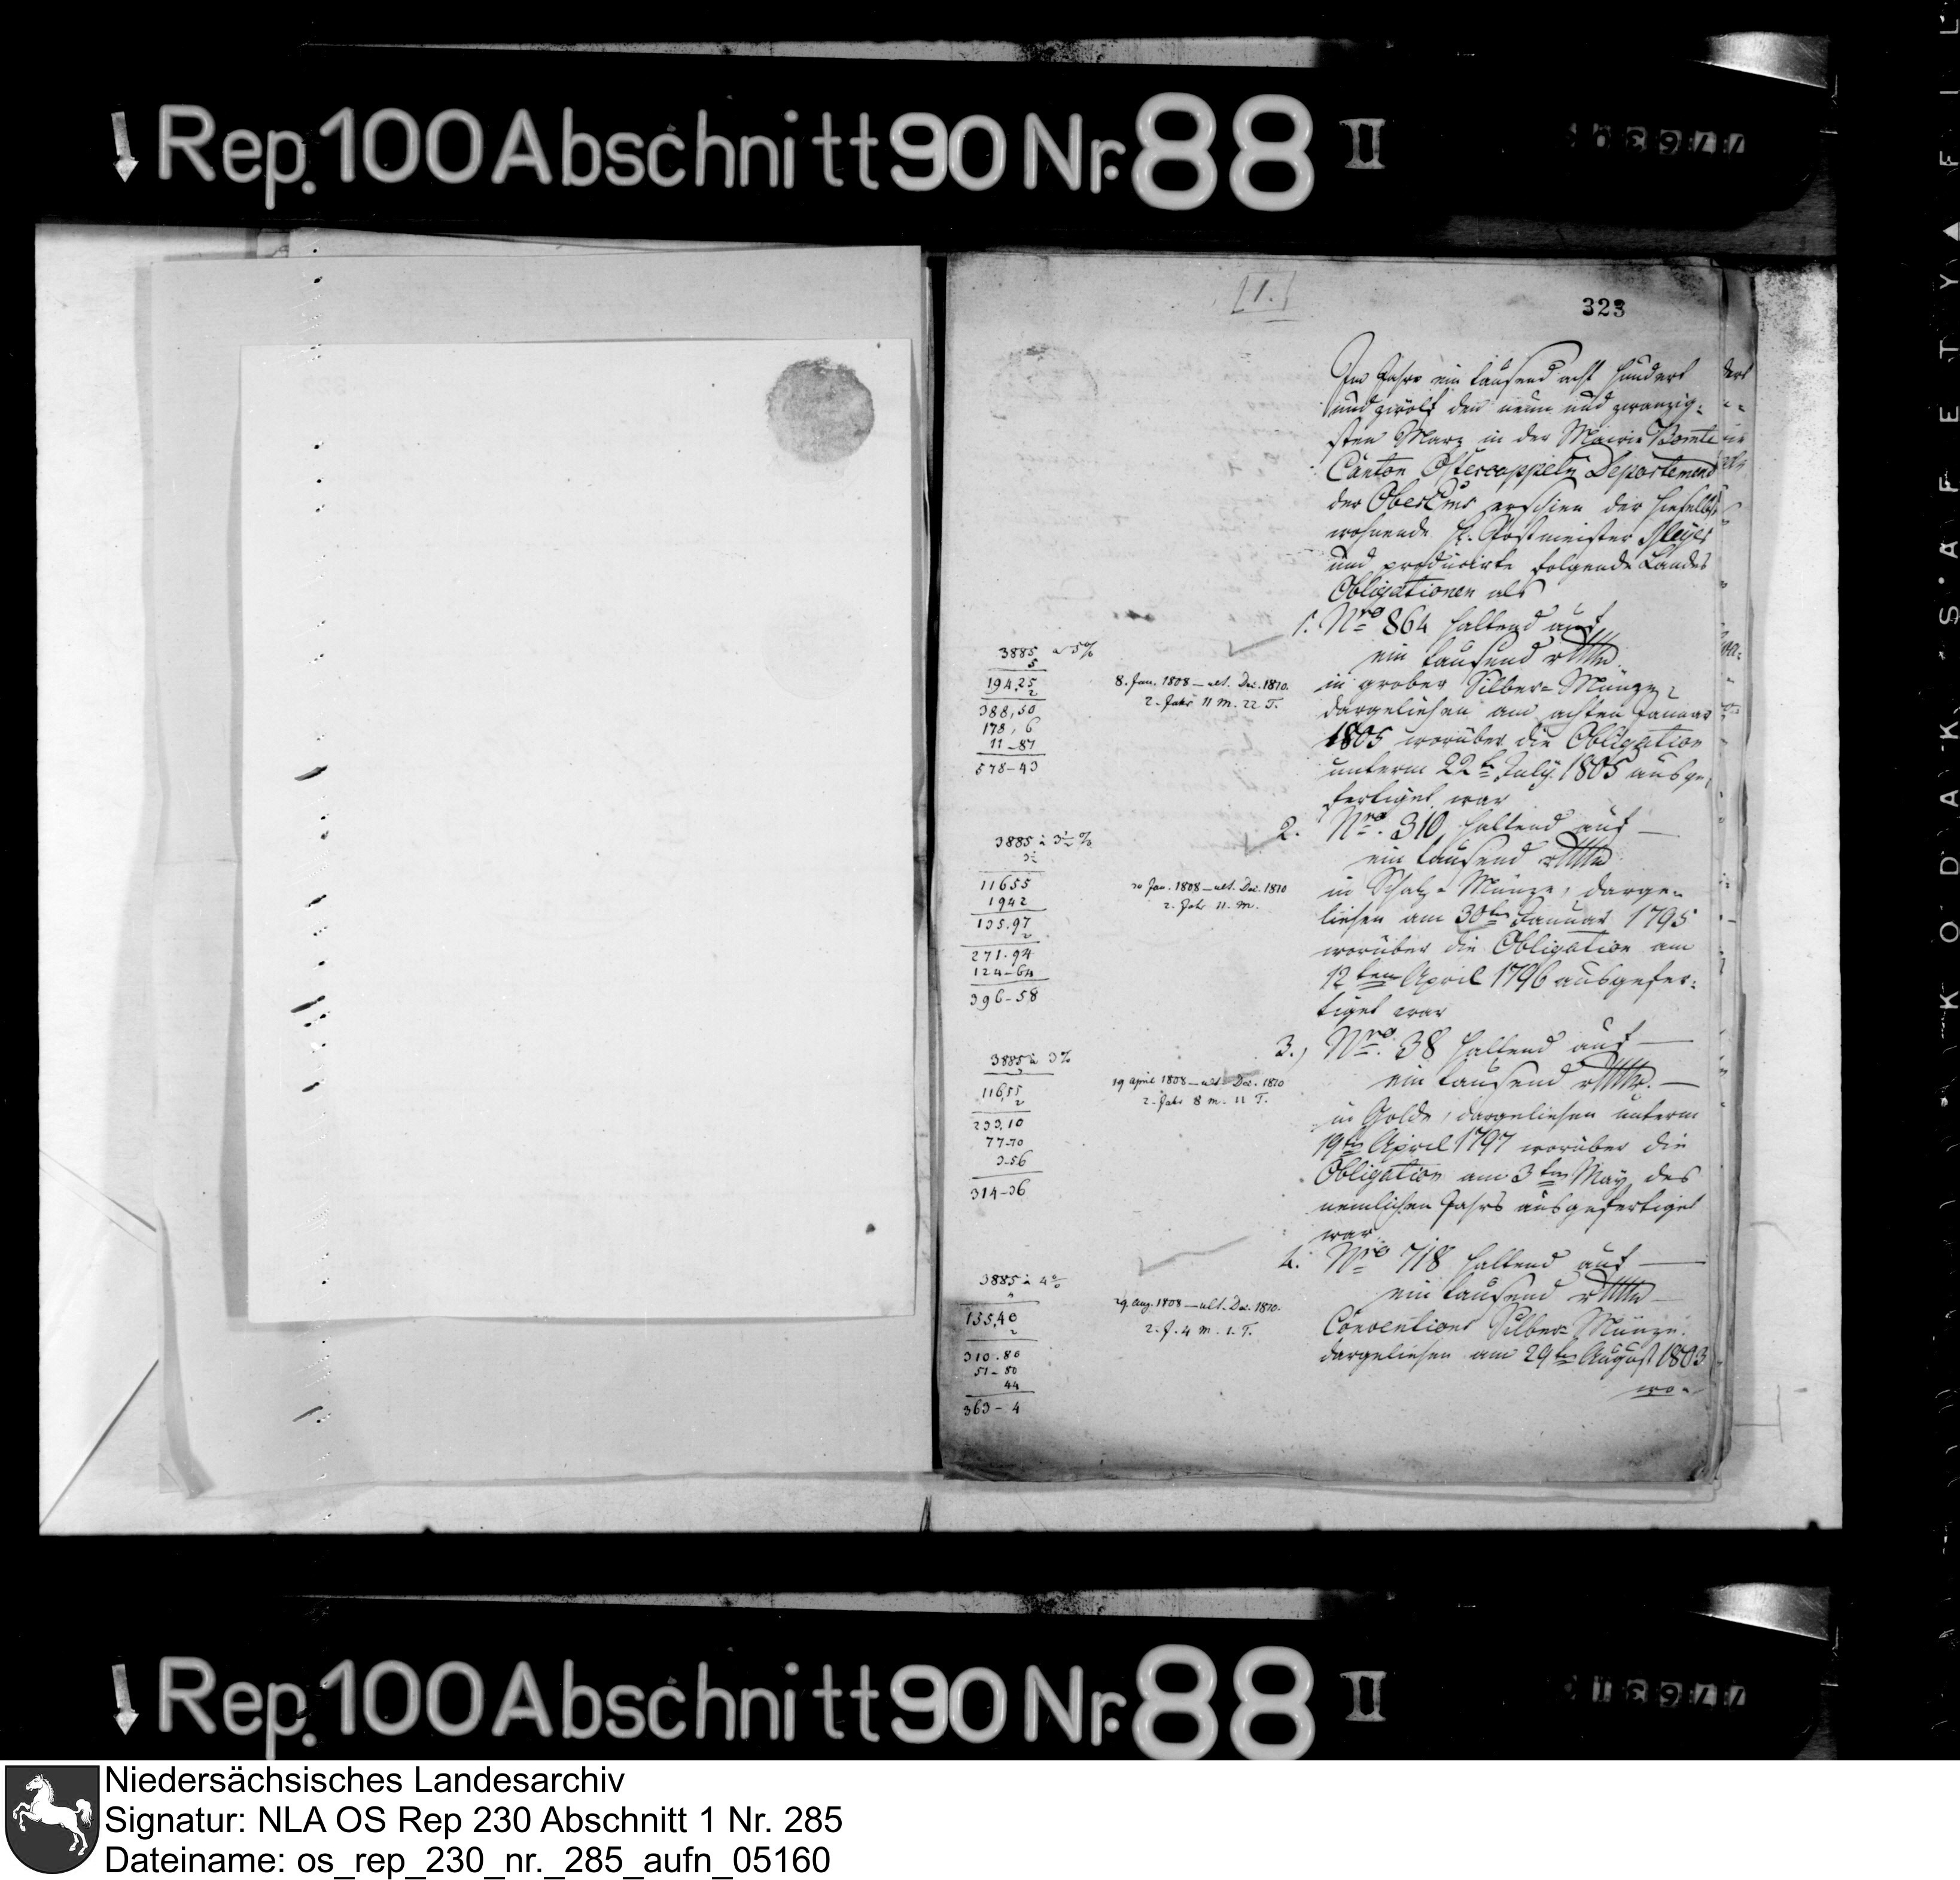 Rep. 100 Abschnitt 90 Nr. 88 II
[1.]
323
Im Jahre ein tausend acht hundert
und zwölf den neun und zwanzig-
sten Marz in der Mairie Bomte
Canton Ostercappeln Departement
der OberEms erschien der hieselbst
wohnende H. Postmeister Meyer
und producirte folgende Landes
Obligationen als
1. Nro 864 haltend auf
ein tausend
in grober Silber-Münze,
dargeliehen am achten Januar
1805 worüber die Obligation
unterm 22t July 1805 ausge-
fertiget war
2. Nro. 310, haltend auf —
ein tausend
in Schatz-Münze, darge-
liehen am 30ten Januar 1795
worüber die Obligation am
12ten April 1796 ausgefer-
tiget war
3., Nro. 38 haltend auf —
ein tausend
in Golde, dargeliehen unterm
19ten April 1797 worüber die
Obligation am 3ten May des
nemlichen Jahrs ausgefertiget
war
4. Nro 718 haltend auf —
ein tausend
Conventions Silber-Münze.
dargeliehen am 29ten August 1803
wo-
3885 a 5%
5
194,25
2
388,50
178, 6
11-87
578-43
8. Jan. 1808 — ult. Dec. 1810.
2. Jahr 11 M. 22 T.
3885 à 3½ %
3½
11655
1942
135.97
2
271.94
124-64
396-58
30 Jan. 1808 — ult. Dec. 1810
2. Jahr 11. M.
3885 à 3%
3
116,55
2
233,10
77-70
3-56
314-36
19 April 1808 — ult. Dec. 1810
2. Jahr 8 M. 11 T.
3885 à 4%
4
155,40
2
310.80
51-80
44
363-4
29 Aug. 1808 — ult. Dec. 1810.
2. J. 4 M. 1. T.
KODAK SAFETY FIL
Rep. 100 Abschnitt 90 Nr. 88 II
Niedersächsisches Landesarchiv
Signatur: NLA OS Rep 230 Abschnitt 1 Nr. 285
Dateiname: os_rep_230_nr._285_aufn_05160